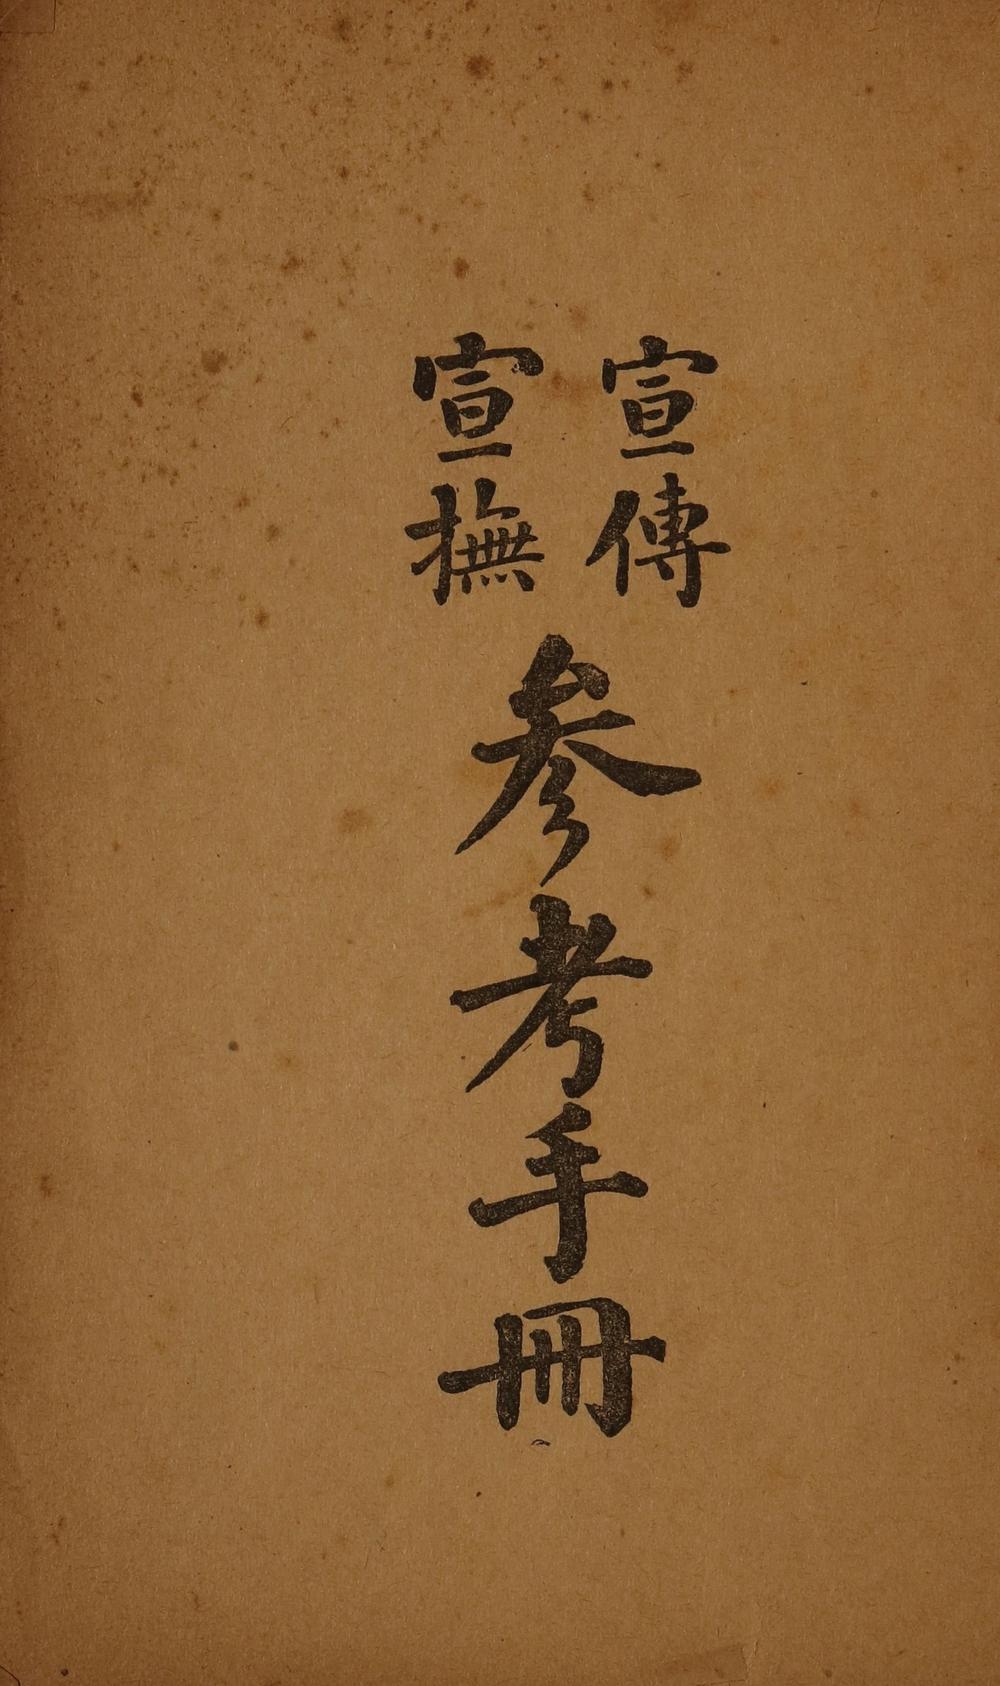 宣傳
宣撫
参考手冊